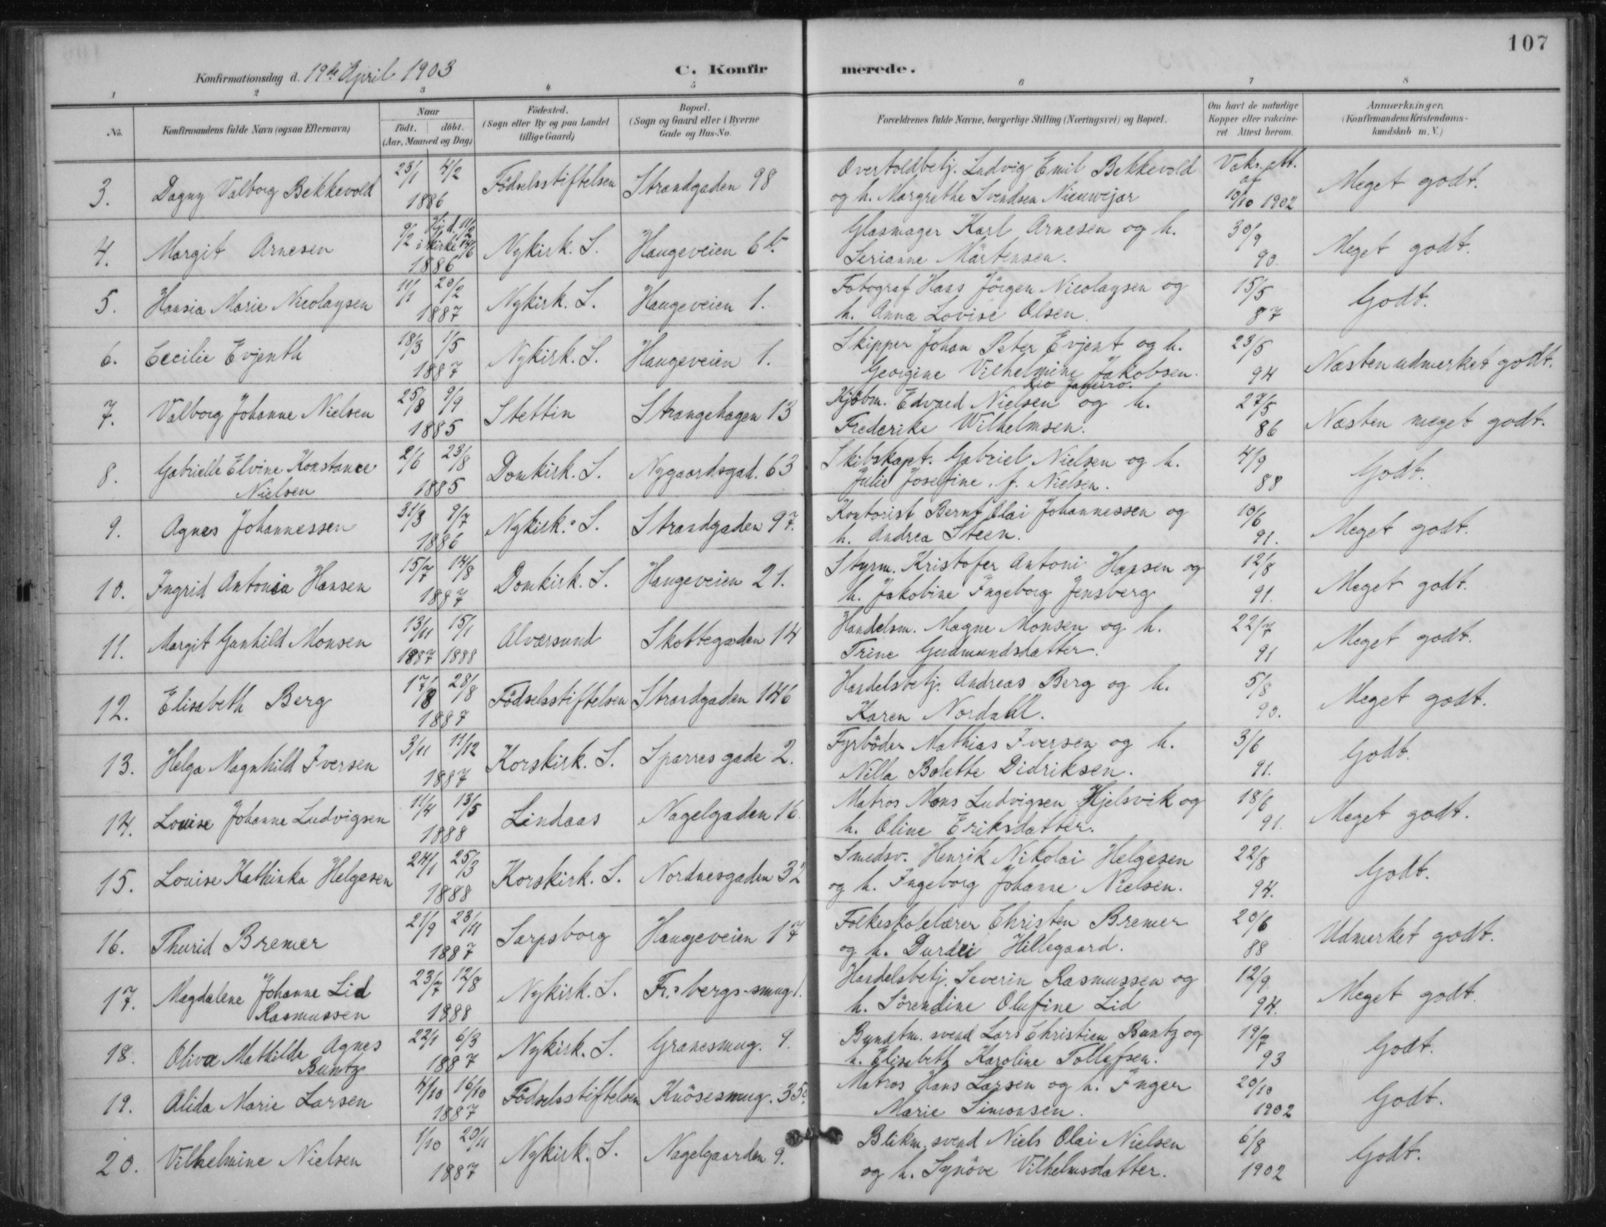 107
Konfirmationsdag d. 19de April 1903
C. Konfirmerede.
1 2 3 4 5 6 7 8
No. Konfirmandens fulde Navn (ogsaa Efternavn) Naar født. døbt. (Aar, Maaned og Dag) Fødested. (Sogn eller By og paa Landet tillige Gaard) Bopæl. (Sogn og Gaard eller i Byerne Gade og Hus-No. Forældrenes fulde Navne, borgerlige Stilling (Næringsvei) og Bopæl. Om havt de naturlige Kopper eller vakcineret. Attest herom. Anmærkninger. (Konfirmandens Kristendomskundskab m. V.)
3. Dagny Valborg Bekkevold 23/1 4/2 1886 Födselsstiftelsen Strandgaden 98 Overtoldbetj. Ludvig Emil Bekkevold Vak. att. af
og h. Margrethe Svendsen Nieuwejar 13/10 1902 Meget godt.
4. Margit Arnesen 9/2 Hj.d. 11/2 i Kirke 14/6 1886 Nykirk. S. Haugeveien 6b. Glasmager Karl Arnesen og h. 30/9
Serianne Mårtensen. 90. Meget godt.
5. Hansia Marie Nicolaysen 11/1 20/2 1887 Nykirk. S. Haugeveien 1. Fotograf Hans Jörgen Nicolaysen og 15/5
h. Anna Lovise Olsen. 87 Godt.
6. Cecilie Evjenth 18/3 1/5 1887 Nykirk. S. Haugeveien 1. Skipper Johan Peter Evjent og h. 23/5
Georgine Vilhelmine Jakobsen. 94 Næsten udmerket godt.
7. Valborg Johanne Nielsen 25/8 9/9 1885 Stettin Strangehagen 13 Kjöbm. Edvard Nielsen Rio Janeiro. og h. 27/5
Frederike Wilhelmsen. 86 Næsten meget godt.
8. Gabrielle Elvine Konstance Nielsen 2/6 23/8 1885 Domkirk. S. Nygaardsgad. 63 Skibskapt. Gabriel Nielsen og h. 4/9
Julie Josefine f. Nielsen. 88 Godt.
9. Agnes Johannessen 31/3 9/7 1886 Nykirk. S. Strandgaden 97. Kontorist Bernt Olai Johannessen og 10/6
h. Andrea Steen. 91. Meget godt.
10. Ingrid Antonia Hansen 15/7 14/8 1887 Domkirk. S. Haugeveien 21. Styrm. Kristofer Antoni Hansen og 12/8
h. Jakobine Ingeborg Jensberg 91. Meget godt.
11. Margit Gunhild Monsen 13/11 15/1 1887 1888 Alværsund Skottegaden 14 Handelsm. Magne Monsen og h. 22/7
Trine Gudmundsdatter. 91 Meget godt.
12. Elisabeth Berg 17/8 28/8 1887 Födselsstiftelsen Strandgaden 146 Handelsbetj. Andreas Berg og h. 5/8
Karen Nordahl. 90. Meget godt.
13. Helga Magnhild Iversen 3/11 11/12 1887 Korskirk. S. Sparres gade 2. Fyrböder Mathias Iversen og h. 3/6
Nilla Bolette Didriksen. 91. Godt.
14. Louise Johanne Ludvigsen 11/4 13/5 1888 Lindaas Nagelgaden 16. Matros Mons Ludvigsen Hjelsvik og 18/6
h. Oline Eriksdatter. 91. Meget godt.
15. Louise Kathinka Helgesen 24/1 25/3 1888 Korskirk. S. Nordnesgaden 32 Smedsv. Henrik Nikolai Helgesen 22/8
og h. Ingeborg Johanne Nielsen. 94. Godt.
16. Thurid Bremer 21/9 23/11 1887 Sarpsborg Haugeveien 17 Folkeskolelærer Christen Bremer 20/6
og h. Durdei Hillegaard. 88 Udmerket godt.
17. Magdalene Johanne Lid Rasmussen 23/7 12/8 1888 Nykirk. S. Fr.sbergs-smug 1. Handelsbetj. Severin Rasmussen og 12/9
h. Sörendine Olufine Lid 94. Meget godt.
18. Oliva Mathilde Agnes Buntz 22/1 6/3 1887 Nykirk. S. Granesmug. 9. Bundtm. svend Lars Christian Buntz og 19/7
h. Elisabeth Karoline Tollefsen. 93 Godt.
19. Alida Marie Larsen 4/10 16/10 1887 Födselsstiftelsen Knösesmug. 35. Matros Hans Larsen og h. Inger 20/10
Marie Simonsen. 1902 Godt.
20. Vilhelmine Nielsen 1/10 20/11 1887 Nykirk. S. Nagelgaarden 9. Blikm. svend Niels Olai Nielsen 6/8
og h. Synöve Vilhelmsdatter. 1902 Godt.